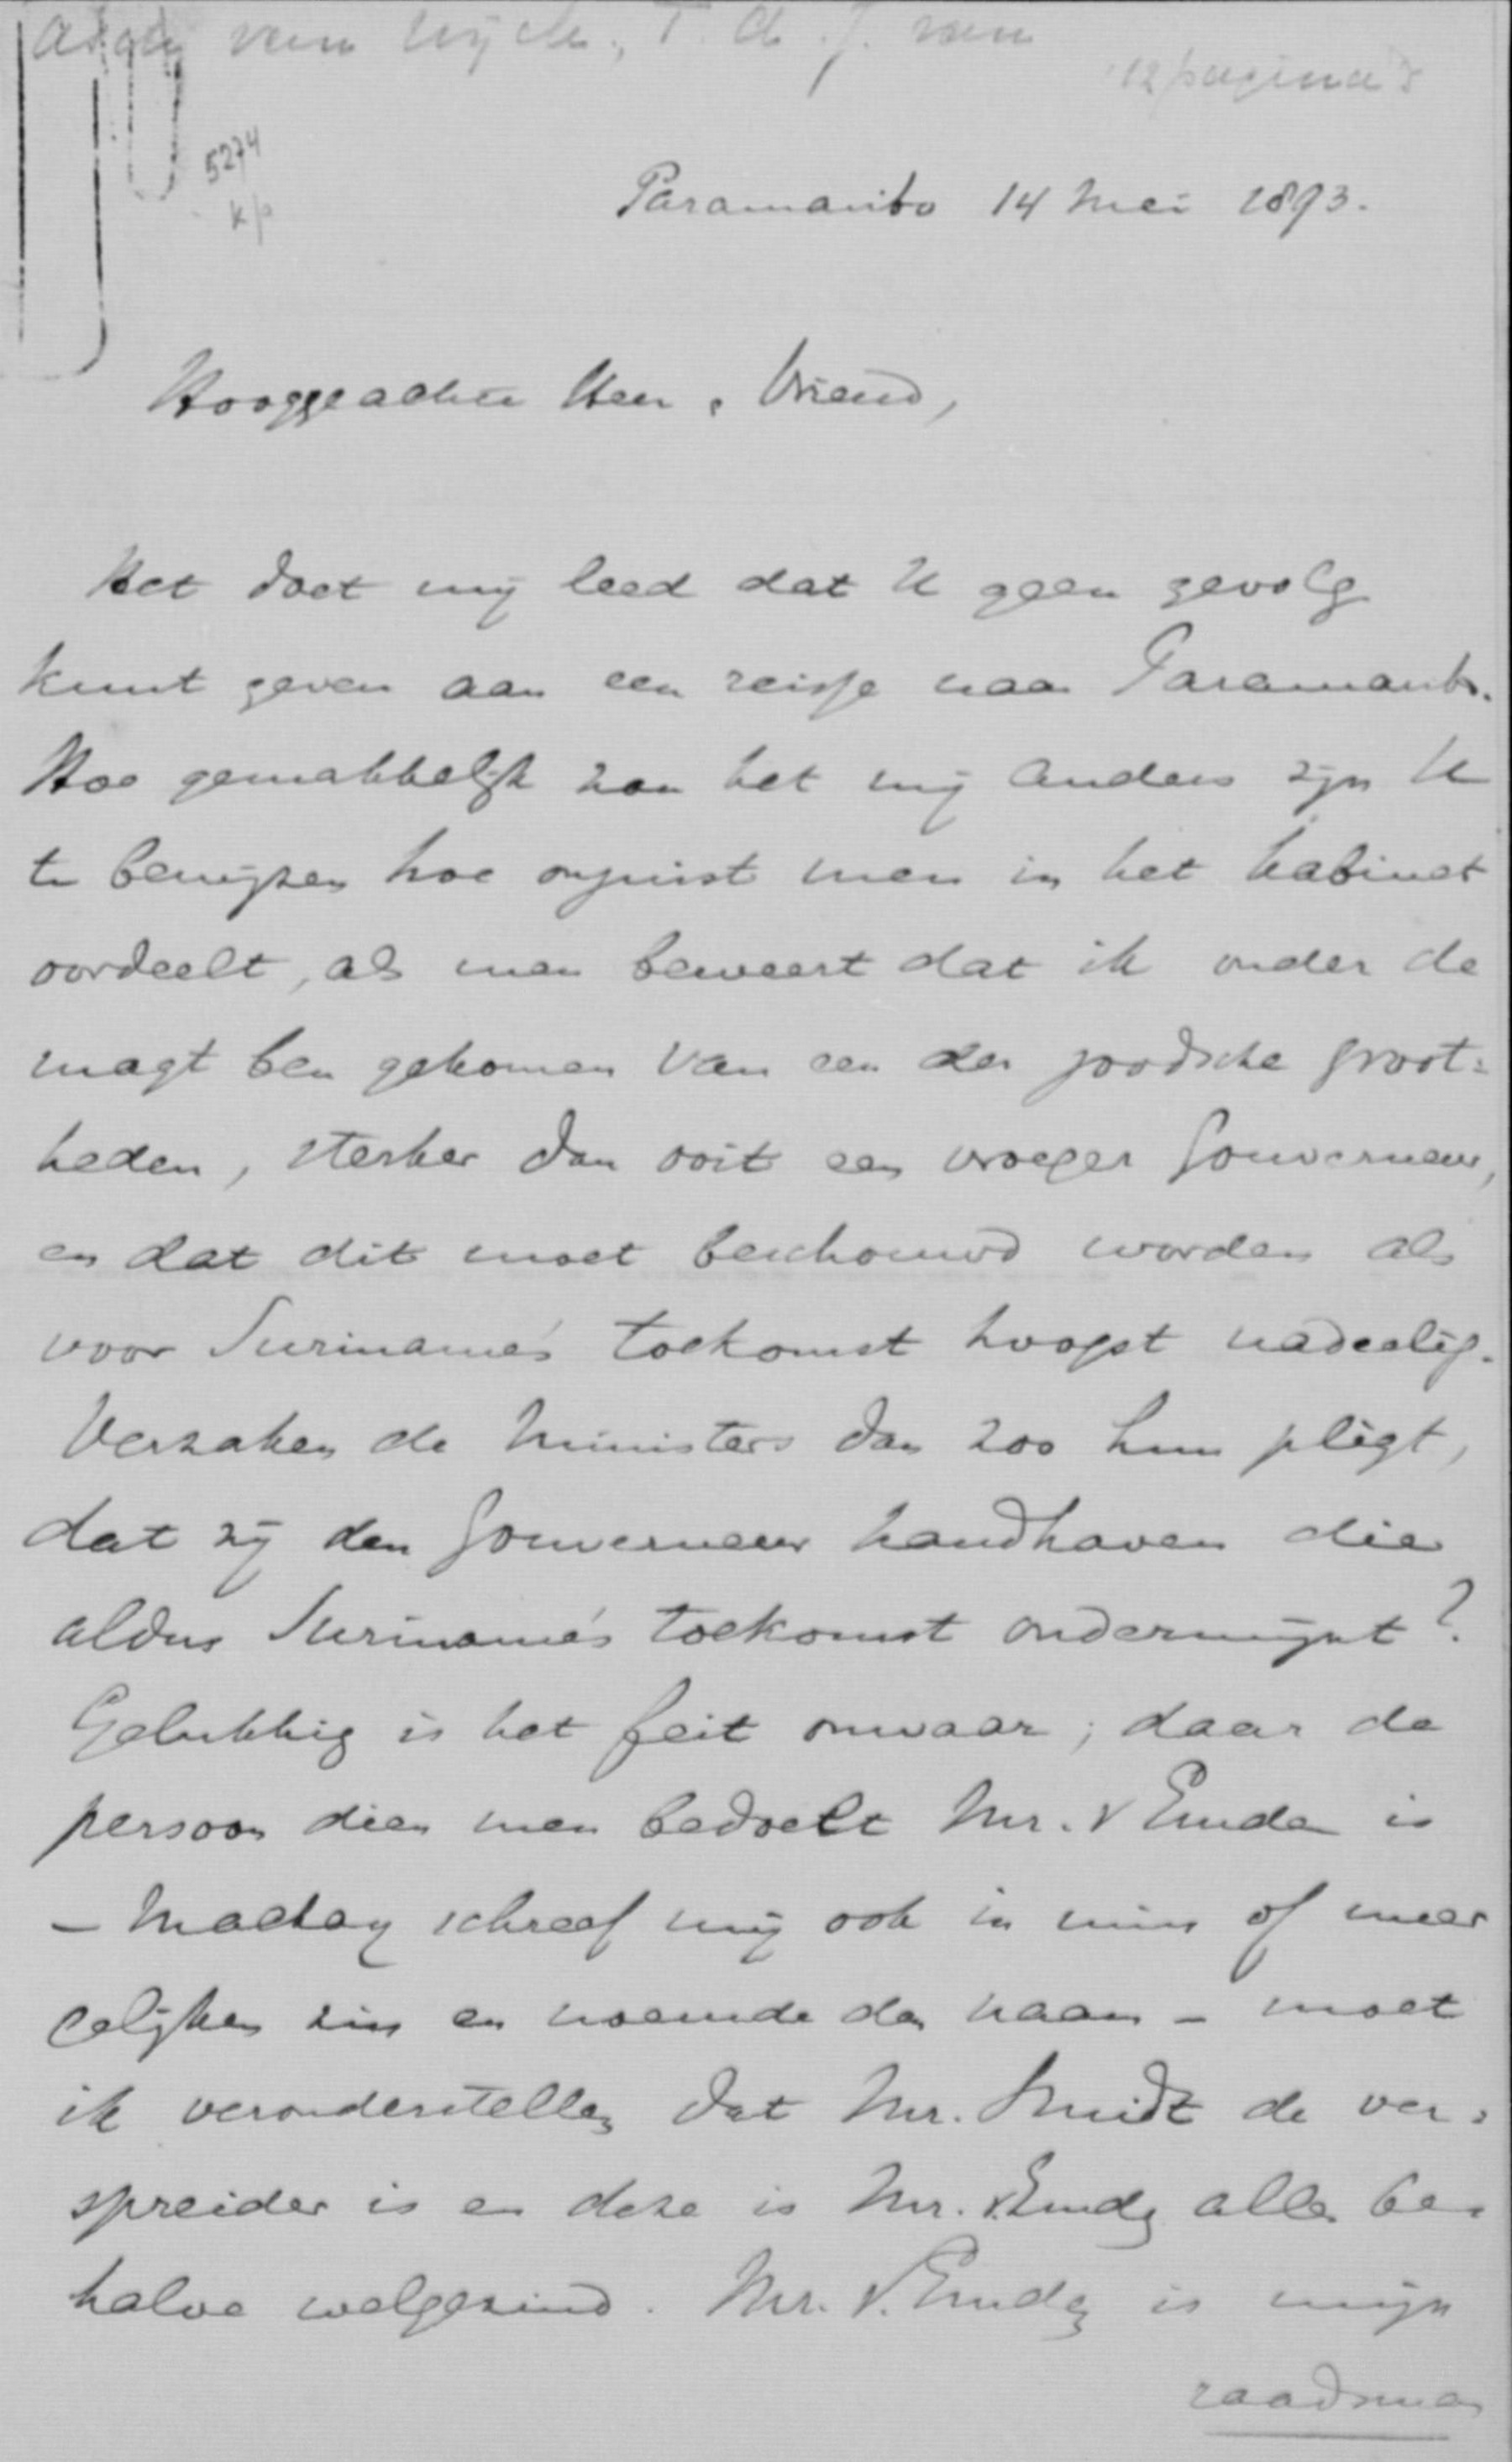 van Wijck, T. A. J. van
12 pagina's
5274
k/p
Paramaribo 14 Mei 1893.
Hooggeachte Heer & Vriend,
Het doet mij leed dat U geen gevolg
kunt geven aan een reisje naar Paramaribo.
Hoe gemakkelijk zou het mij anders zijn U
te bewijzen hoe onjuist men in het kabinet
oordeelt, als men beweert dat ik onder de
magt ben gekomen van een der joodsche groot=
heden, sterker dan ooit een vroeger Gouverneur,
en dat dit moet beschouwd worden als
voor Suriname's toekomst hoogst nadeelig.
Verzaken de Ministers dan zoo hun pligt,
dat zij den Gouverneur handhaven die
aldus Suriname's toekomst ondermijnt?
Gelukkig is het feit onwaar; daar de
persoon dien men bedoelt Mr. v Emden is
- Mackay schreef mij ook in min of meer
gelijken zin en noemde den naam - moet
ik veronderstellen dat Mr. Smidt de ver=
spreider is en deze is Mr. v. Emden alles be=
halve welgezind. Mr. v. Emden is mijn
raadsman